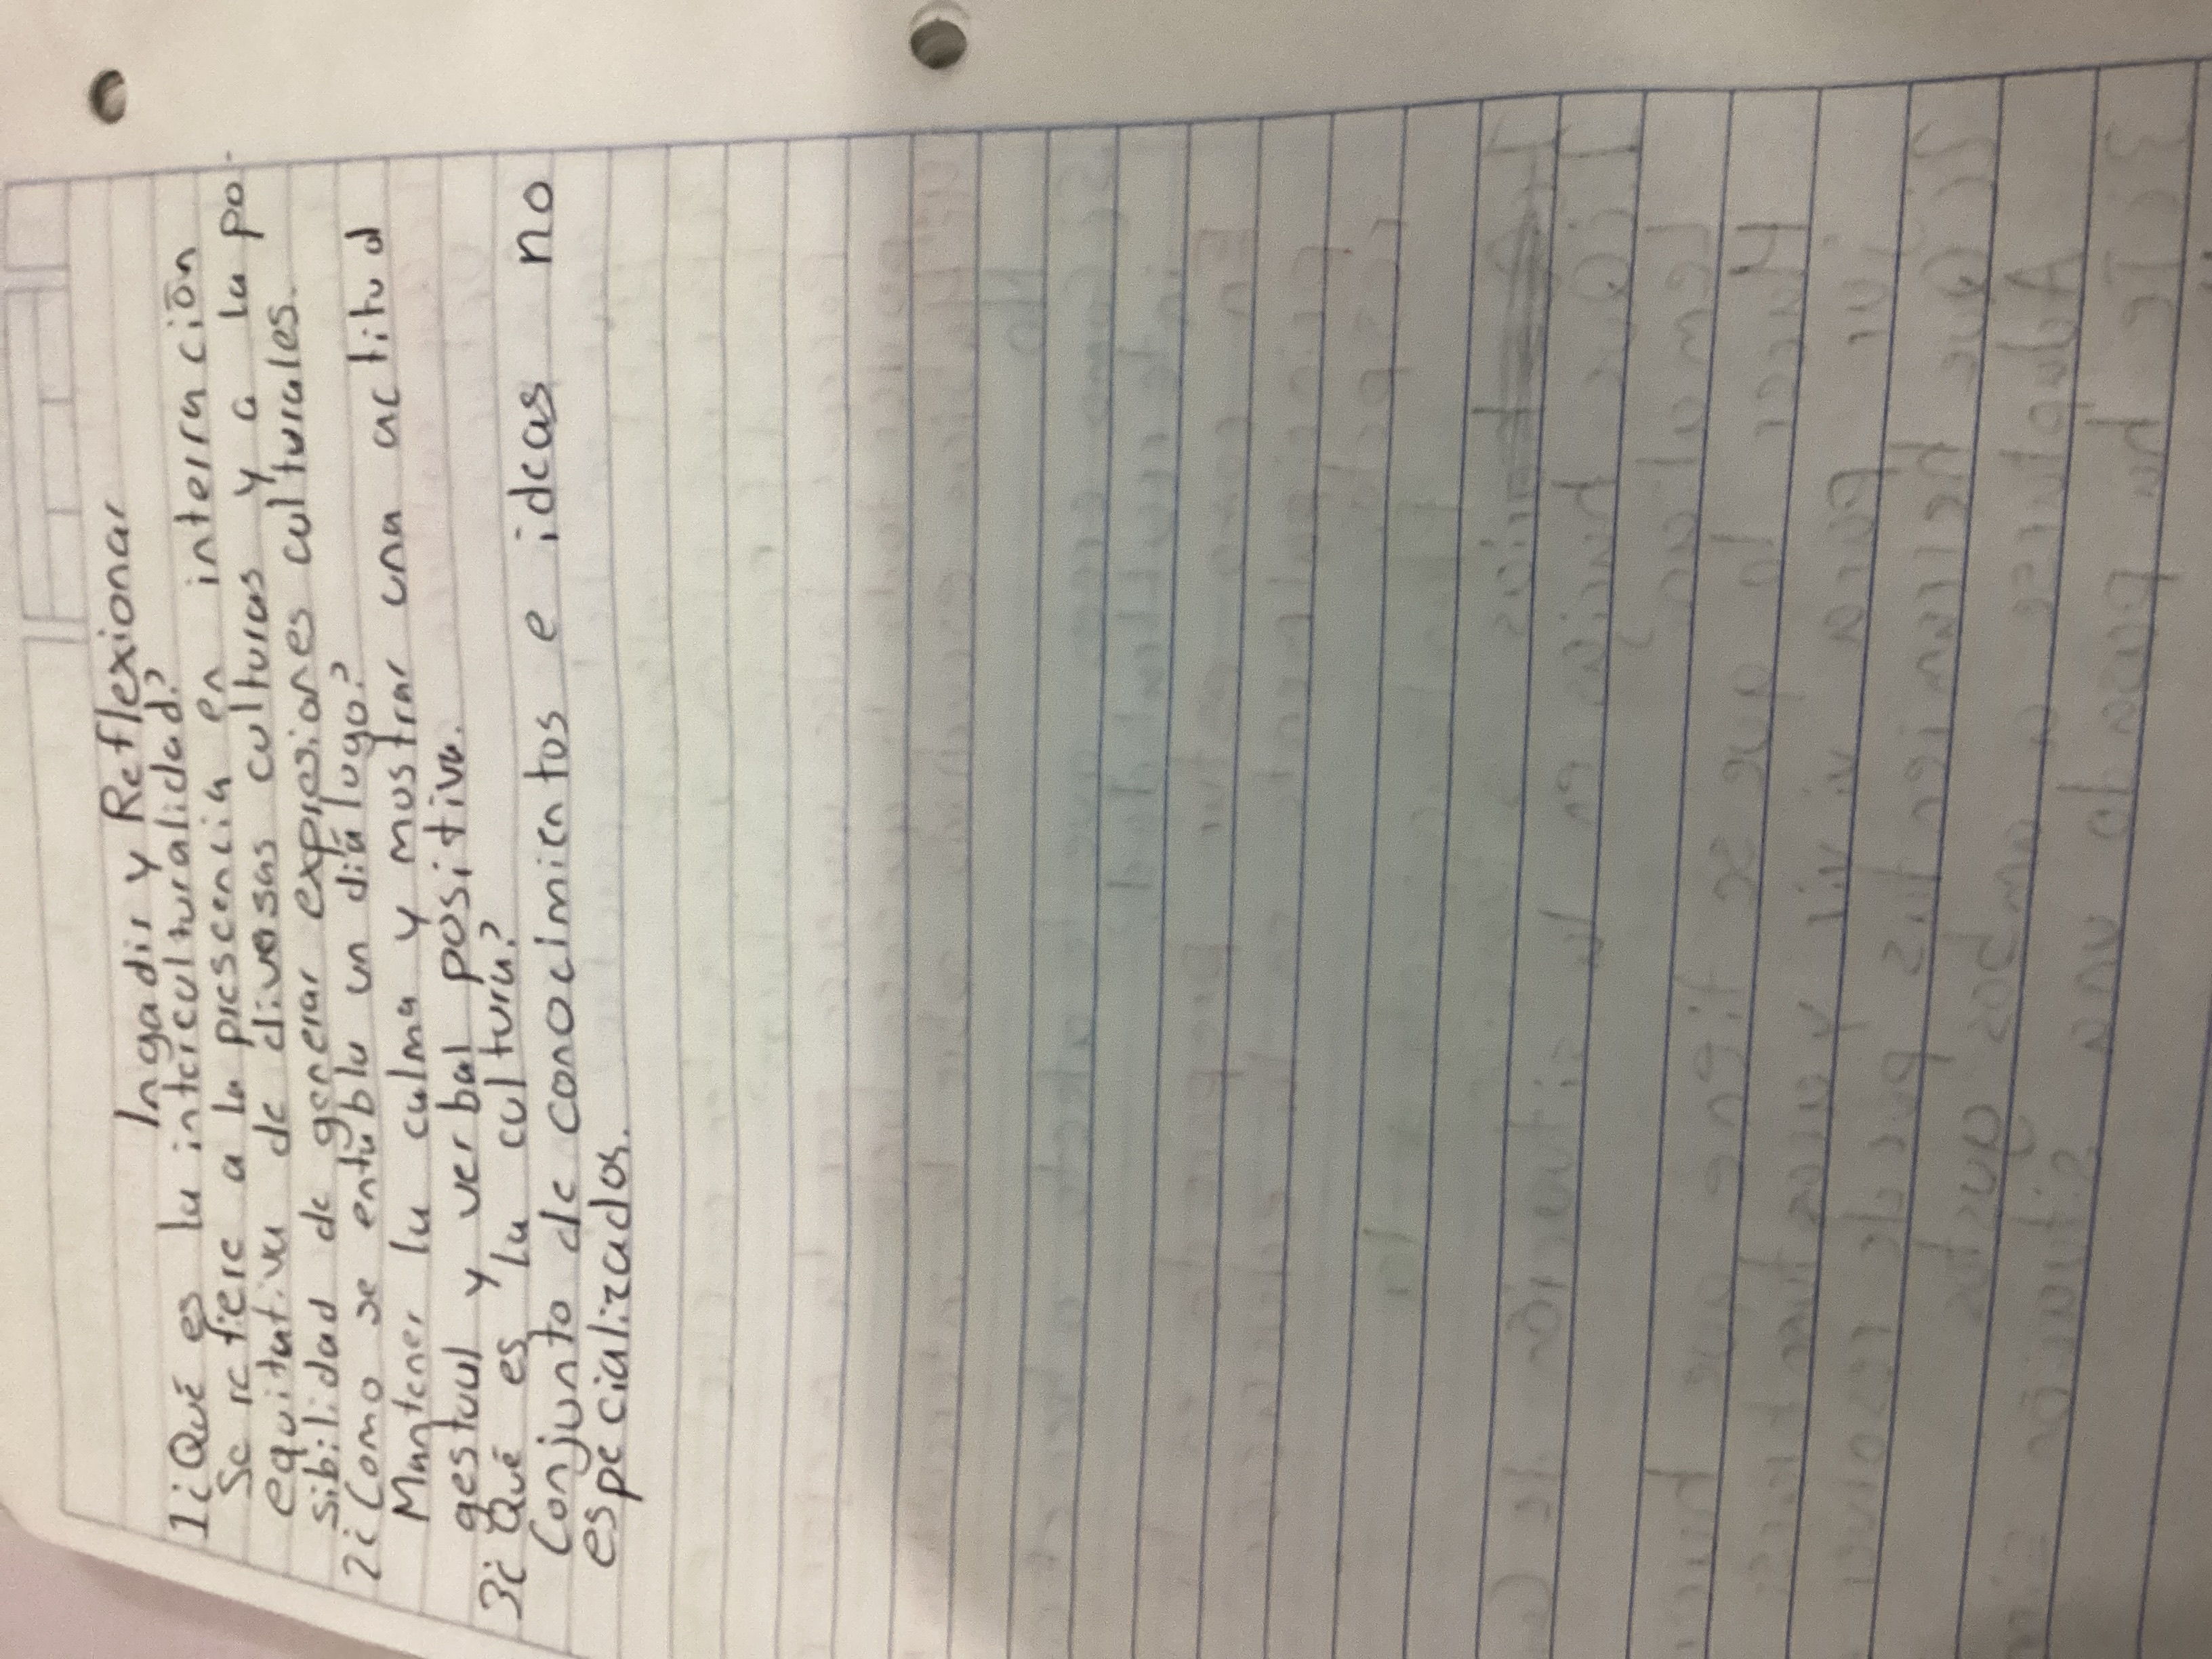 Ingadir y Reflexionar
1¿Qué es la interculturalidad?
Se refiere a la prescencia en interración
equitativa de diversas culturas y a la po-
sibilidad de generar expresiones culturales.
2¿Como se entabla un diálogo?
Mantener la calma y mostrar una actitud
gestual y verbal positiva.
3¿Qué es la cultura?
Conjunto de conocimientos e ideas no
especializados.